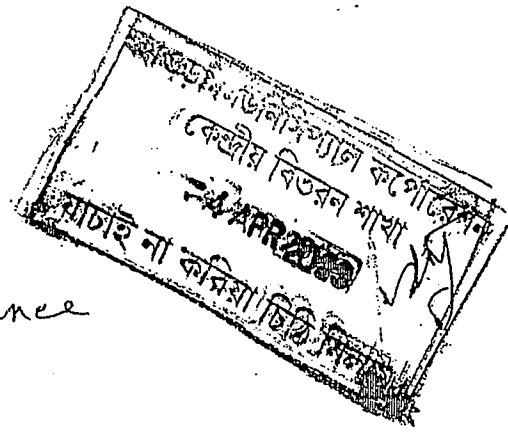 মিউনিসিপ্যাল কর্পোরেশন
কেন্দ্রীয় বিতরন শাখা
4 APR
যাচাই না করিয়া চিঠি
nce